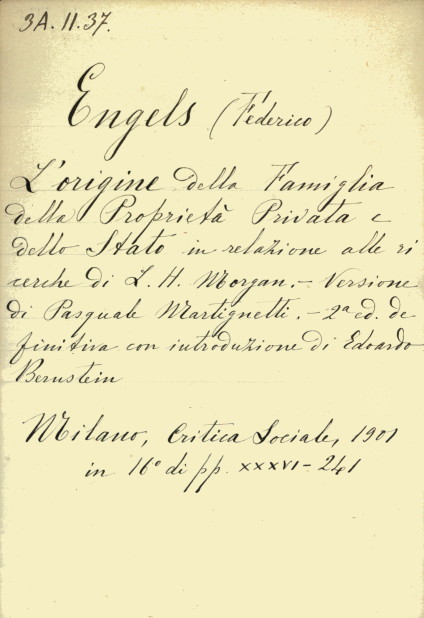 3A. II. 37.
Engels (Féderico)
L'origine della Famiglia
della Proprietà Privata e
dello Stato in relazione alle ri
cerche di L. H. Morgan. - Versione
di Pasquale Martignetti. - 2ª ed. de
finitiva con introduzione di Edoardo
Bernstein
Milano, Critica Sociale, 1901
in 16° di pp. XXXVI - 241